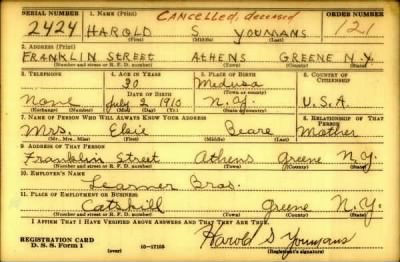 SERIAL NUMBER 1. NAME (Print) CANCELLED, deceased ORDER NUMBER
2424 HAROLD S YOUMANS 121
(First) (Middle) (Last)
2. ADDRESS (Print)
FRANKLIN STREET ATHENS GREENE N.Y.
(Number and street or R. F. D. number) (Town) (County) (State)
3. TELEPHONE 4. AGE IN YEARS 5. PLACE OF BIRTH 6. COUNTRY OF CITIZENSHIP
30 Medusa
DATE OF BIRTH (Town or county)
None July 2 1910 N.Y. U.S.A.
(Exchange) (Number) (Mo.) (Day) (Yr.) (State or country)
7. NAME OF PERSON WHO WILL ALWAYS KNOW YOUR ADDRESS 8. RELATIONSHIP OF THAT PERSON
Mrs. Elsie Beare Mother
(Mr., Mrs., Miss) (First) (Middle) (Last)
9. ADDRESS OF THAT PERSON
Franklin Street Athens Greene N.Y.
(Number and street or R. F. D. number) (Town) (County) (State)
10. EMPLOYER'S NAME
Learner Bros.
11. PLACE OF EMPLOYMENT OR BUSINESS
Catskill Greene N.Y.
(Number and street or R. F. D. number) (Town) (County) (State)
I AFFIRM THAT I HAVE VERIFIED ABOVE ANSWERS AND THAT THEY ARE TRUE.
REGISTRATION CARD
D. S. S. Form 1 (over) 16-17105 Harold S Youmans
(Registrant's signature)